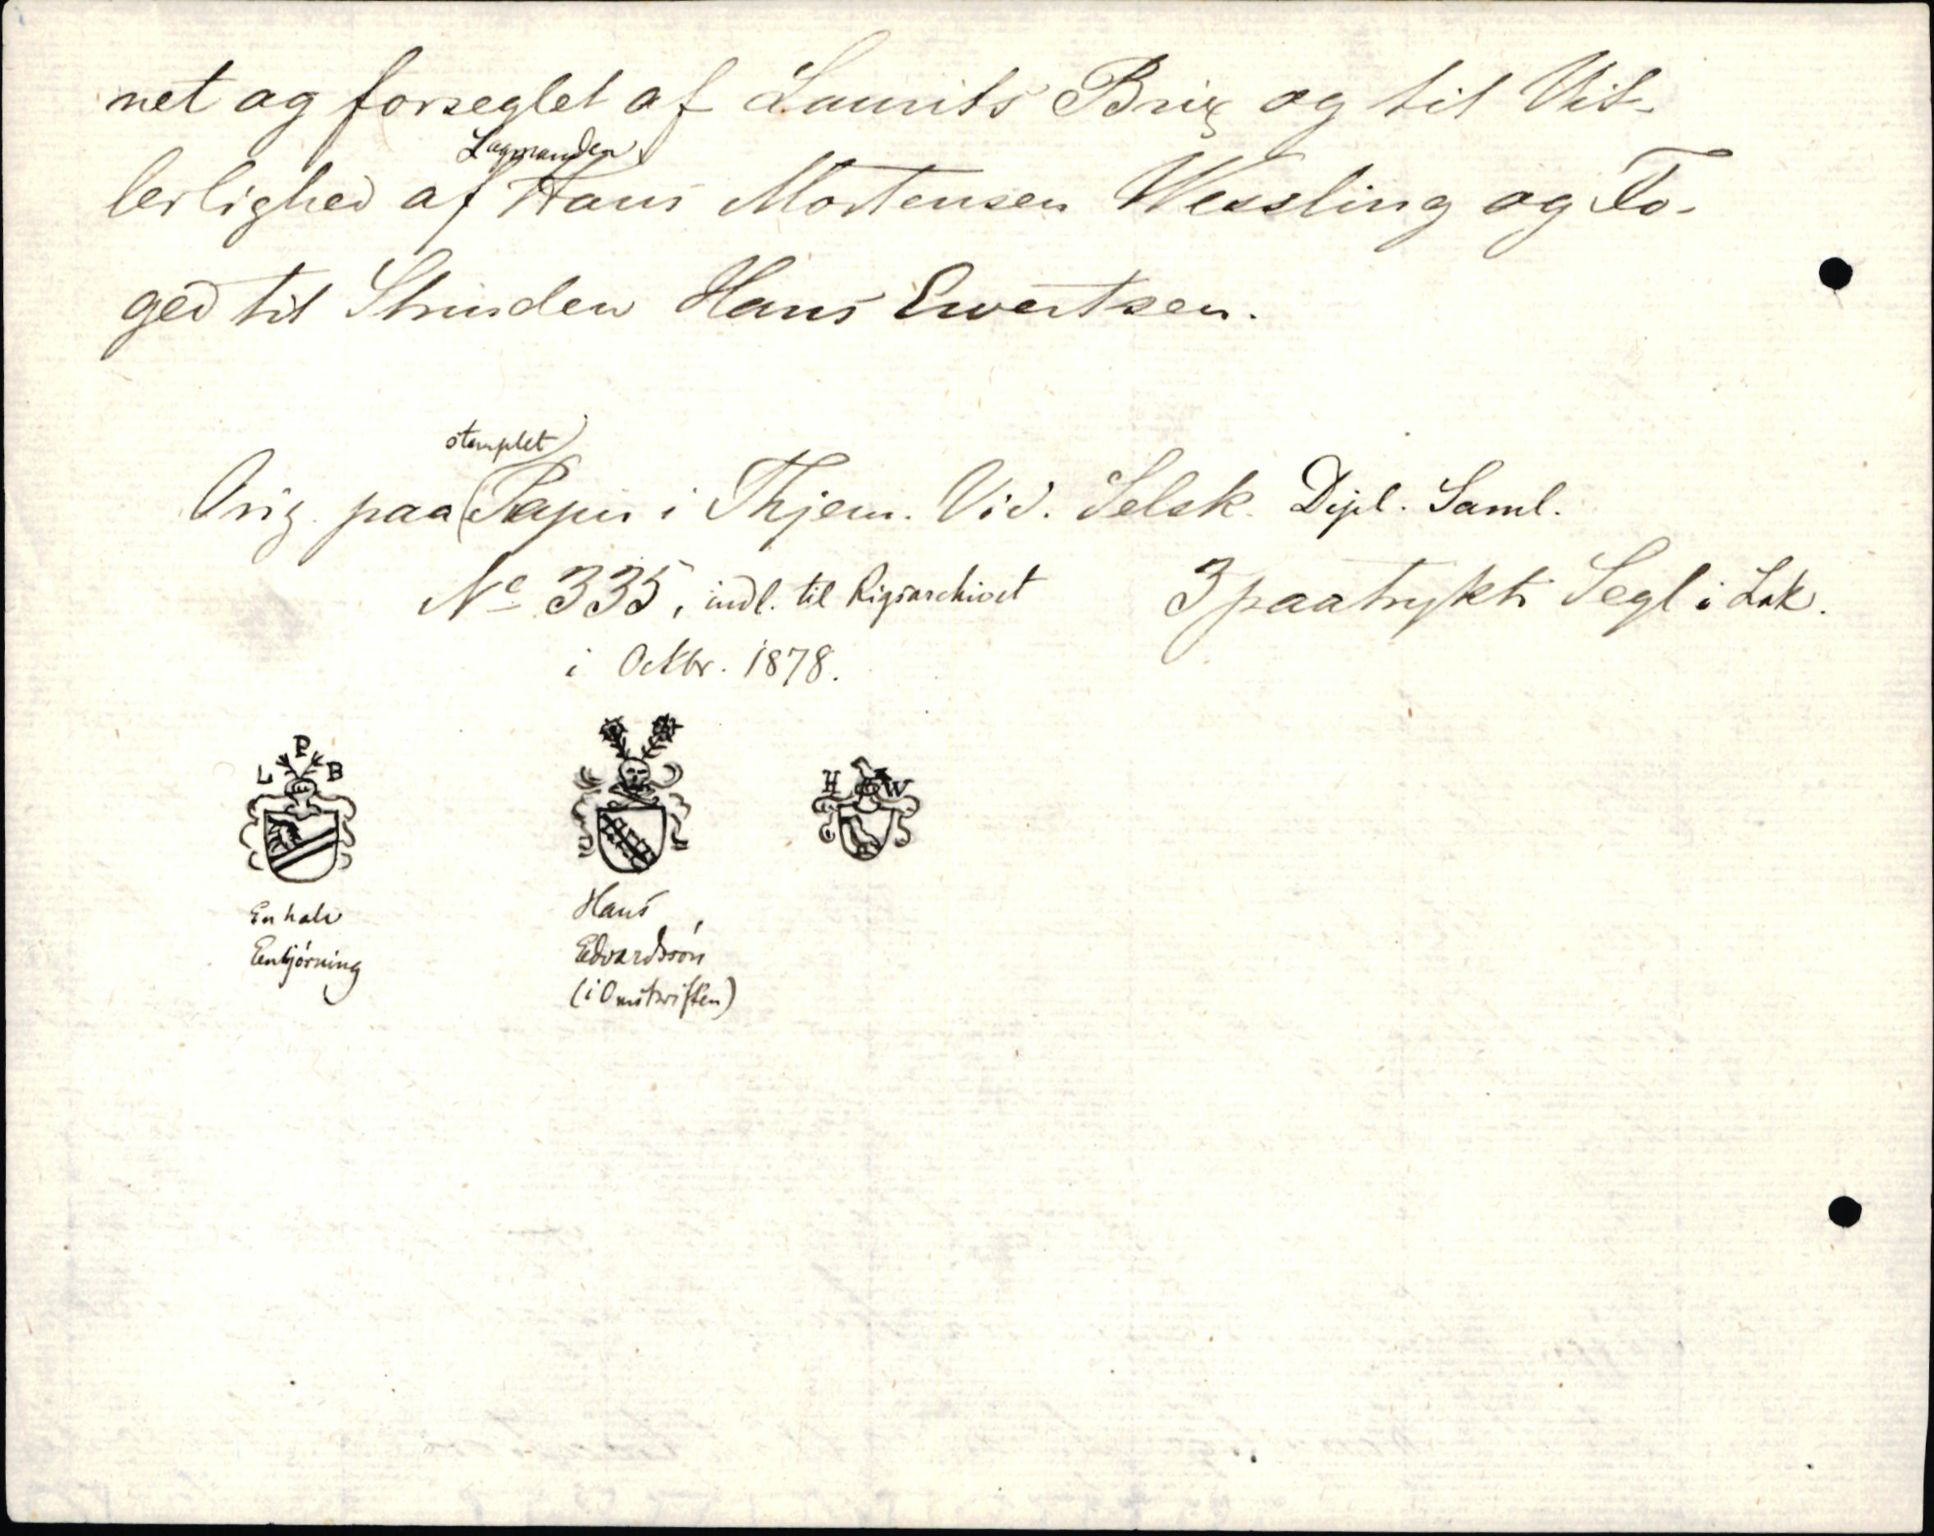 net og forseglet af Laurits Brix og til Vit-
Lagmanden
lerlighed af Hans Mortensen Wessling og Fo-
ged til Strinden Hans Evertsen.
stemplet
Orig. paa Papir i Thjem. Vid. Selsk. Dipl. Saml.
No 335, indl. til Rigsarchivet 3 paatrykte Segl i Lak.
i Octbr. 1878.
L P B
H W
En halv
Eenhjørning
Hans
Edvardssøn
(i Omskriften)